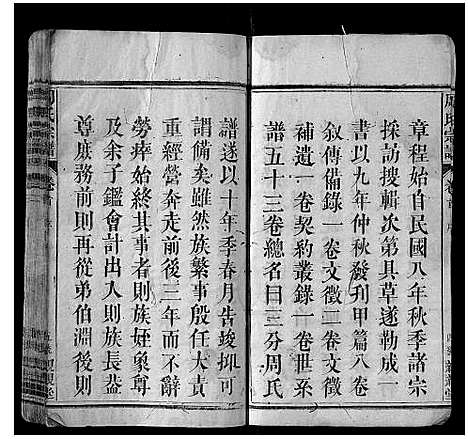 章程始自民國八年秋季諸宗
採訪搜輯次第具草遂勒成一
書以九年仲秋發刋甲篇八卷
敘傳備錄一卷文徵二卷文徵
補遺一卷契約叢錄一卷世系
譜五十三卷總名曰三分周氏
譜遂以十年季春月告竣抑可
謂備矣雖然族繁事殷任大責
重經營奔走前後三年而不辭
勞瘁始終其事者則族姪泉尊
及余子鑑會計出入則族長益
尊庶務前則再從弟伯淵後則